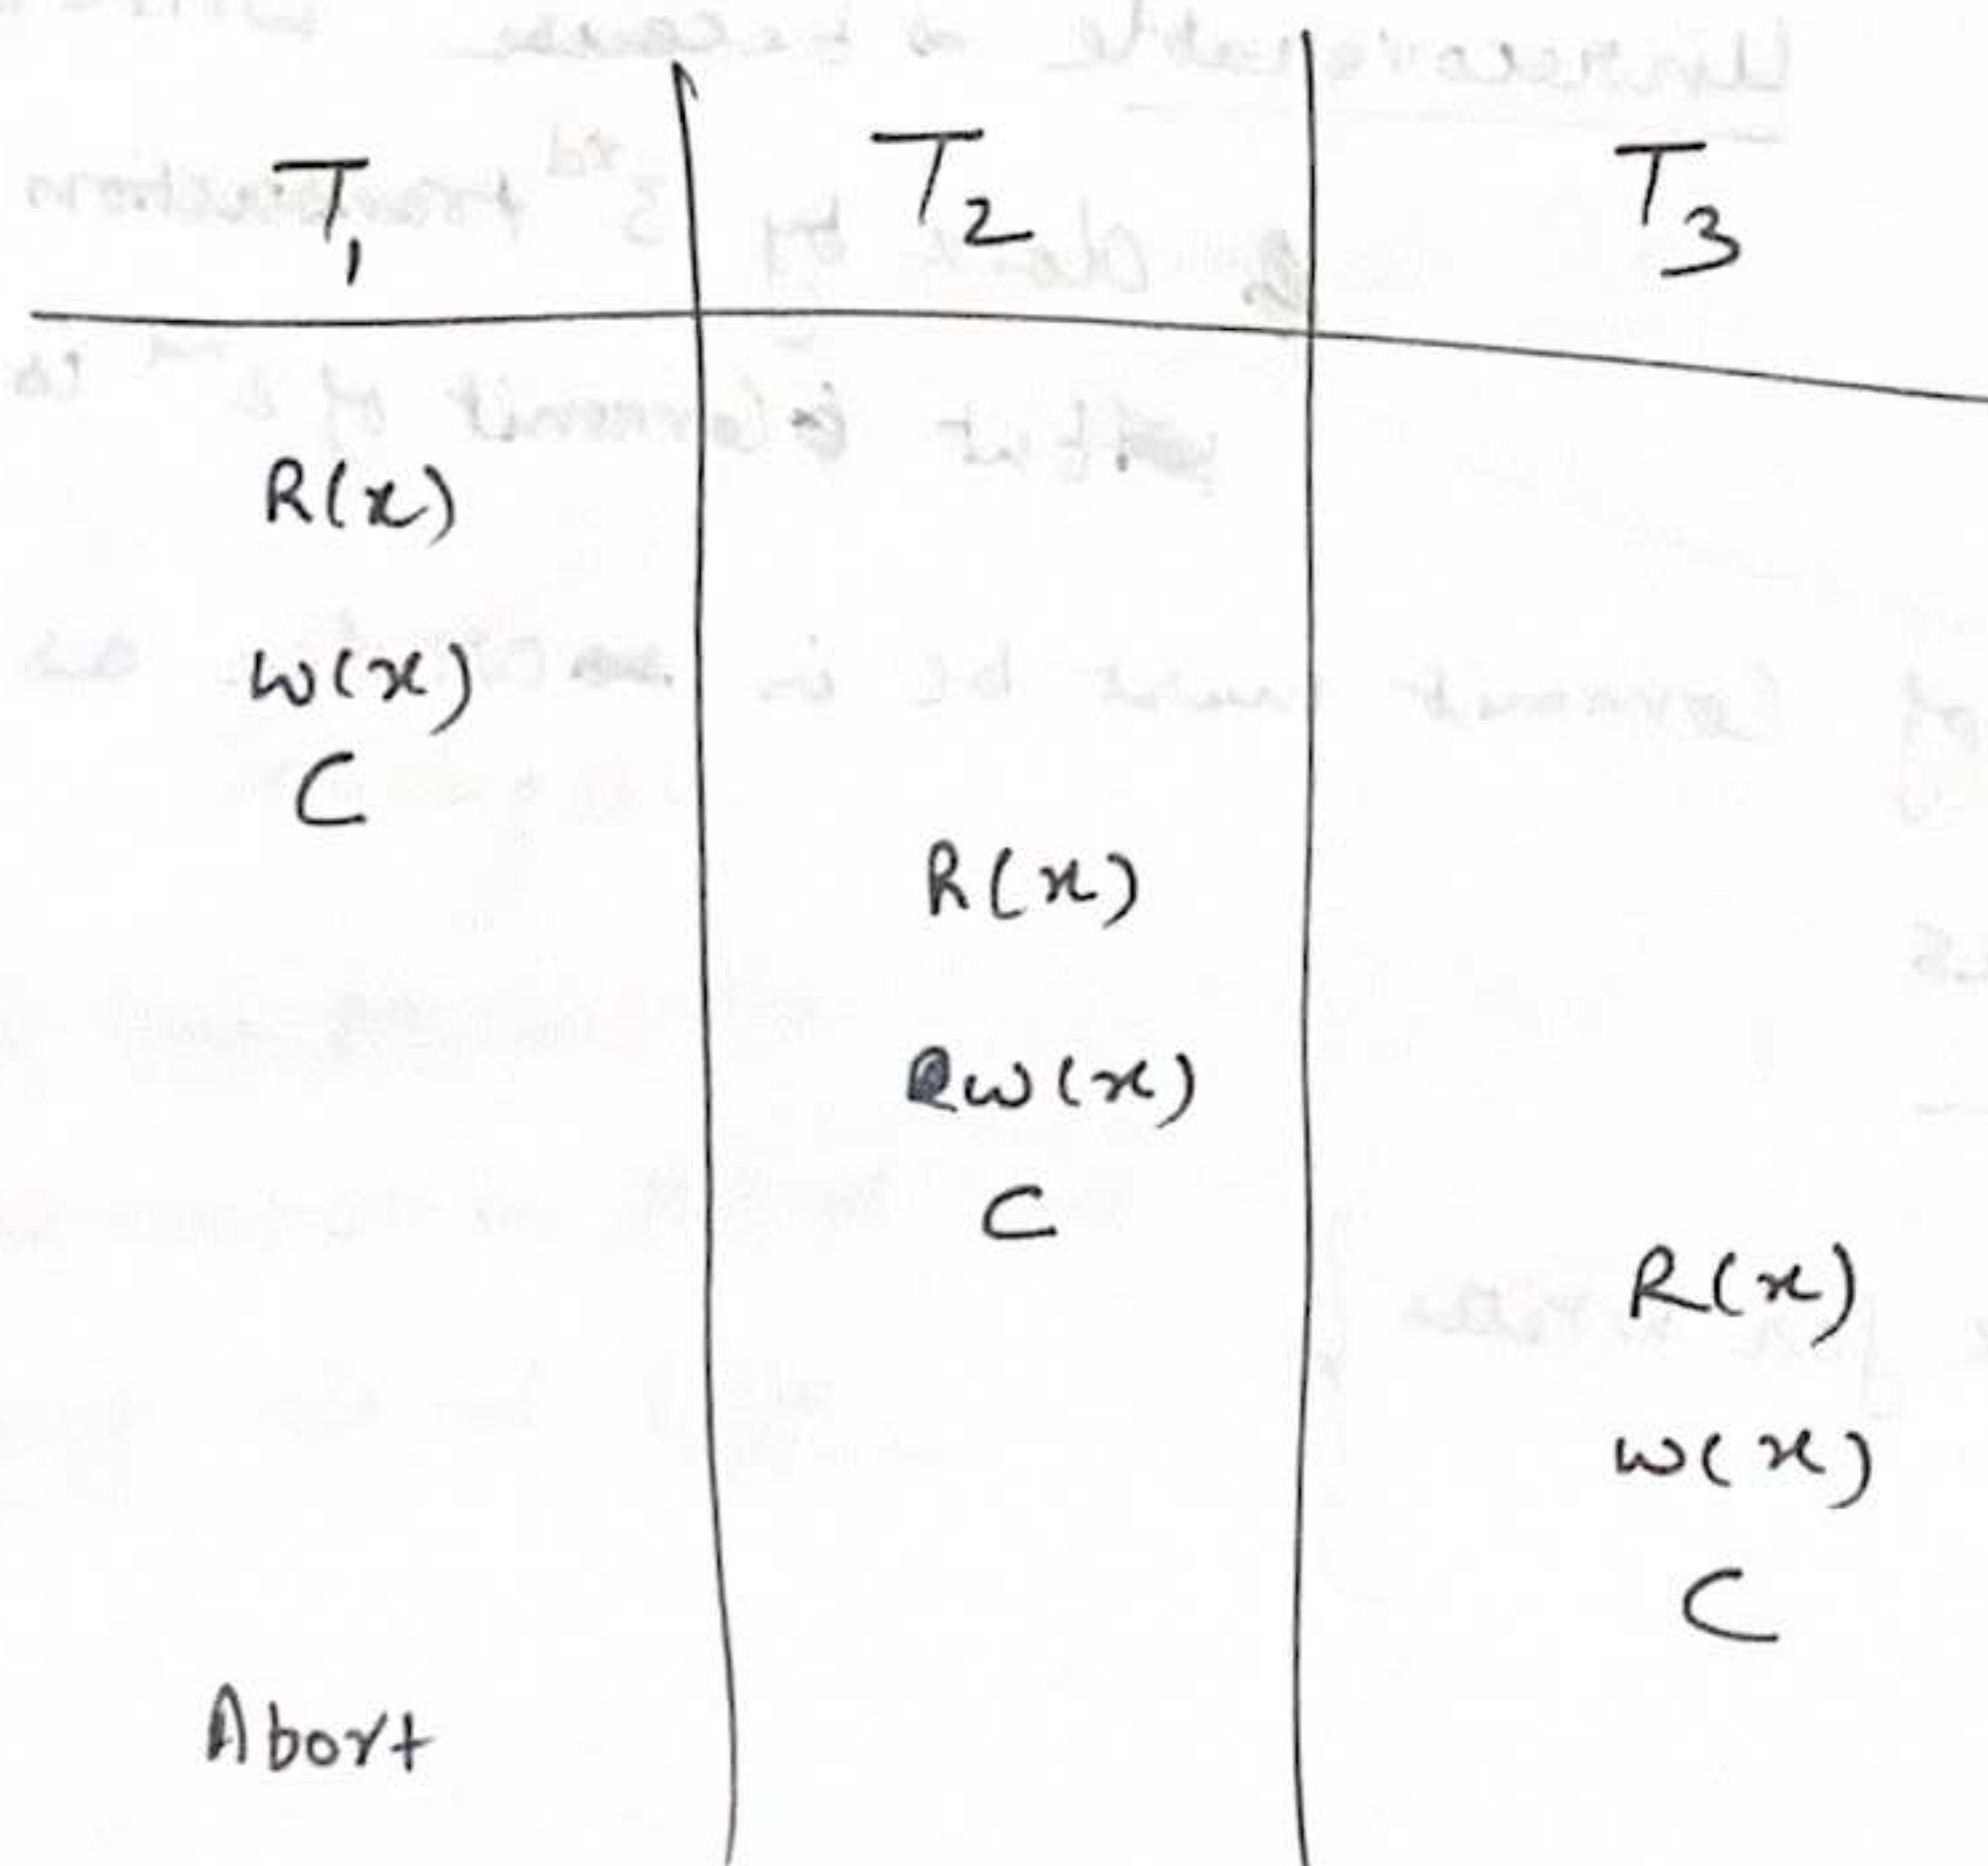 T1 T2 T3
R(x)
W(x)
C
R(x)
W(x)
C
R(x)
W(x)
C
Abort